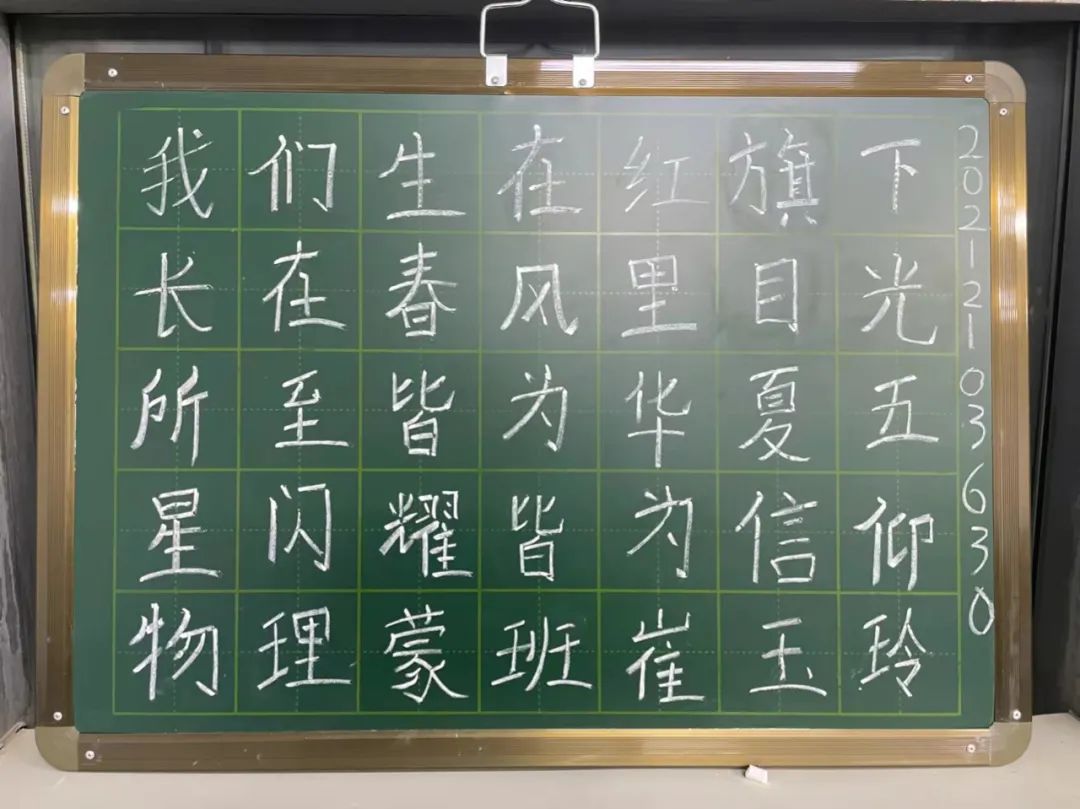 我们生在红旗下
长在春风里目光
所至皆为华夏五
星闪耀皆为信仰
物理蒙班崔玉玲
2021212103630